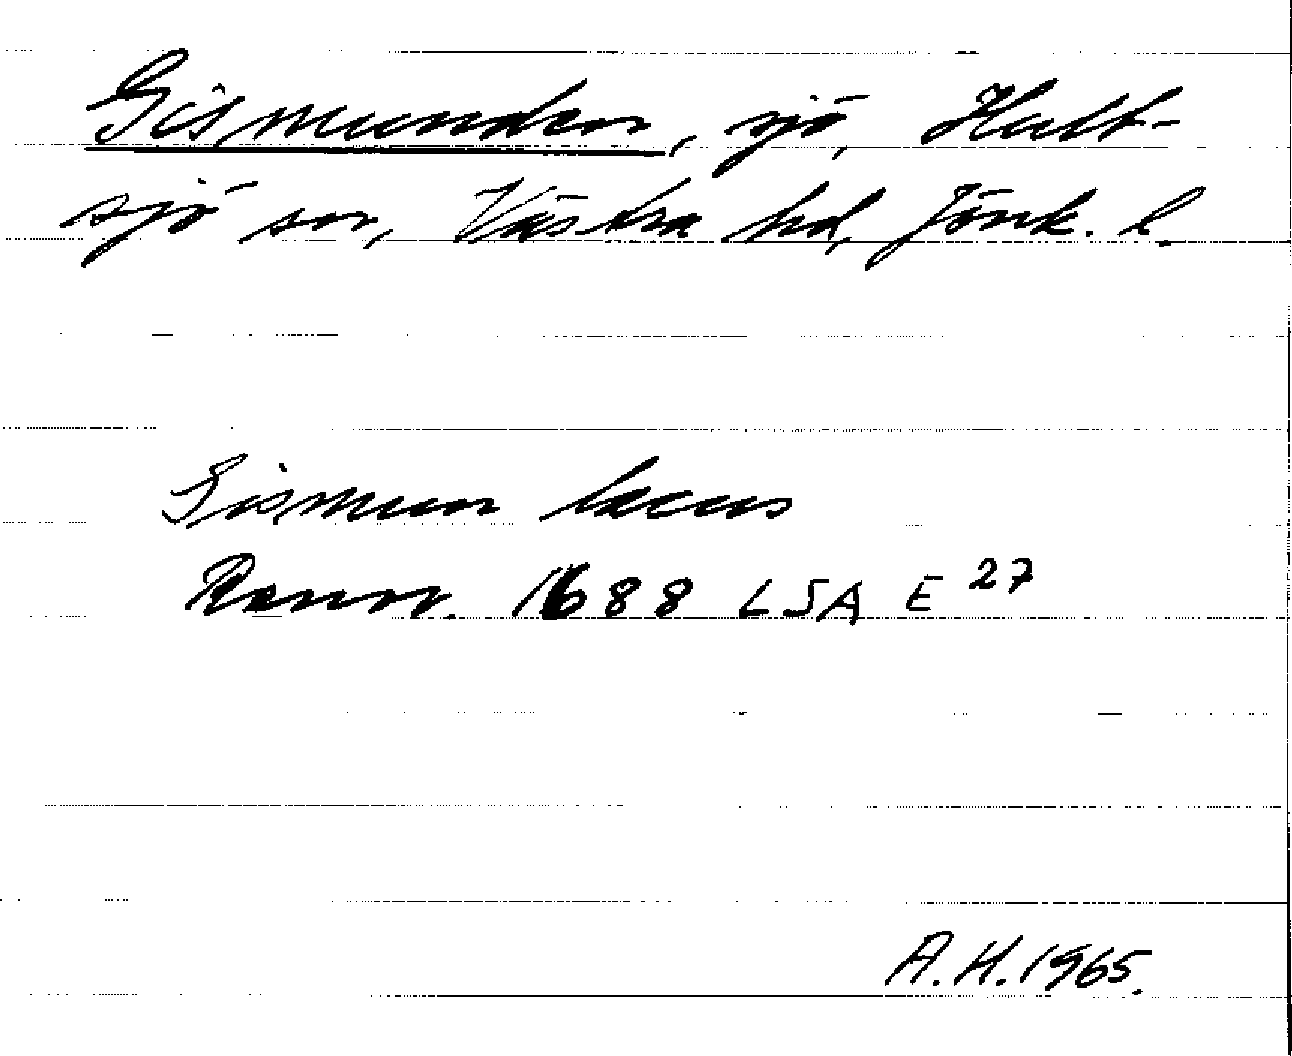 Gismunden, sjö, Hult-
sjö sn, Västra hd, Jönk. l.
Gismunn lacus
Rannv. 1688 LSA E 27
A.H. 1965.